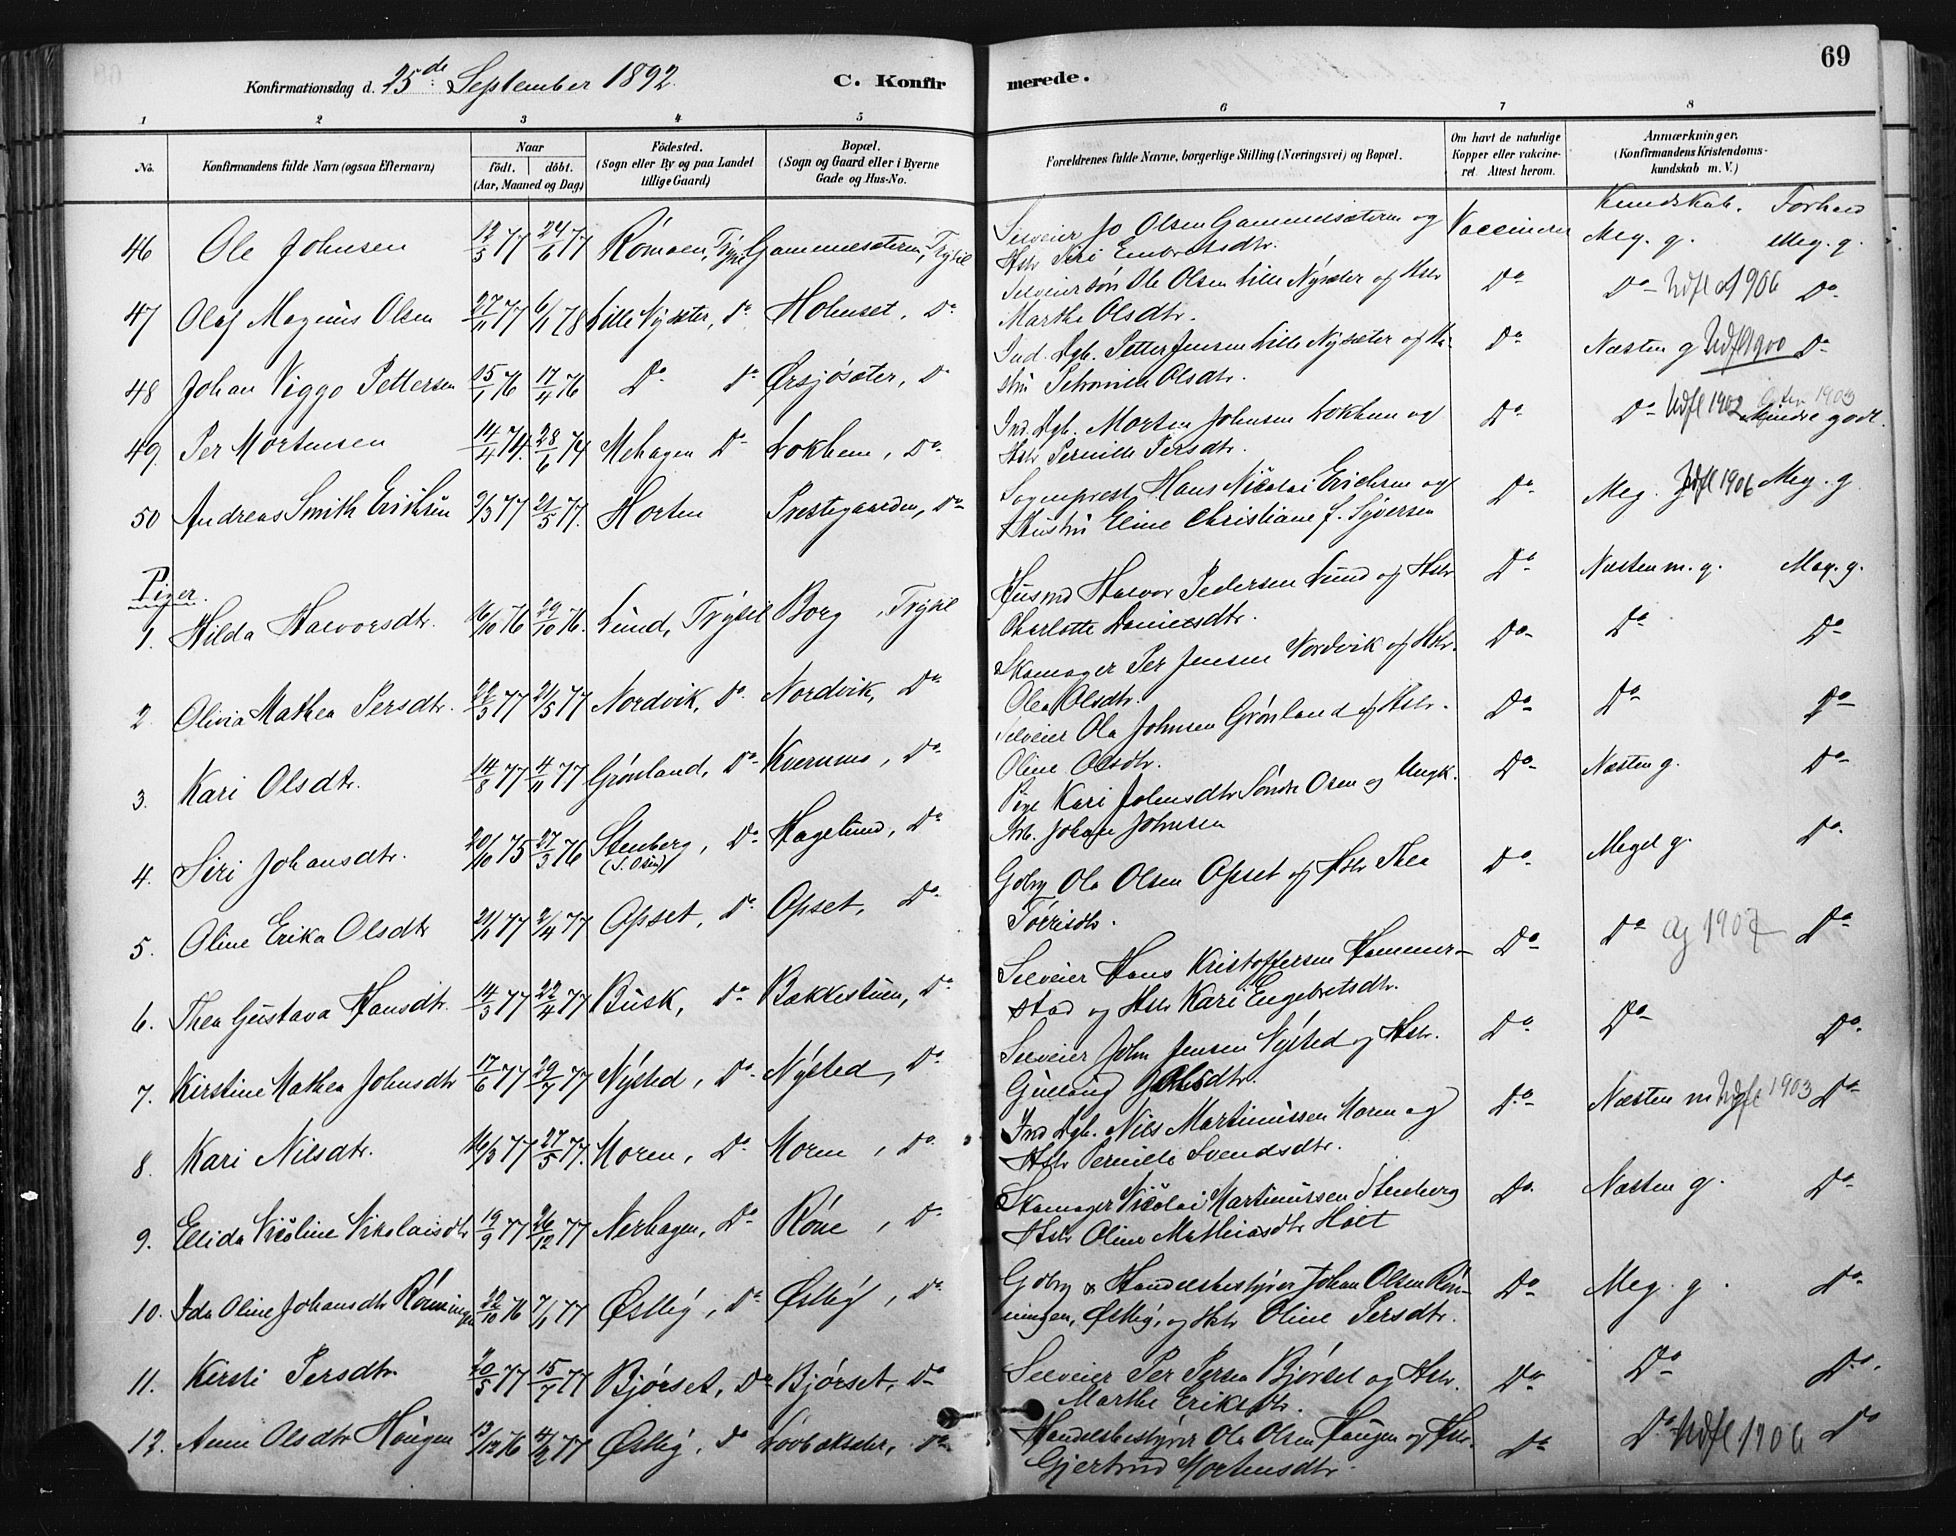 69
Konfirmationsdag d. 25de September 1892. C. Konfirmerede.
1 2 3 4 5 6 7 8
No. Konfirmandens fulde Navn (ogsaa Efternavn) Naar født. døbt. (Aar, Maaned og Dag) Fødested. (Sogn eller By og paa Landet tillige Gaard) Bopæl. (Sogn og Gaard eller i Byerne Gade og Hus-No. Forældrenes fulde Navne, borgerlige Stilling (Næringsvei) og Bopæl. Om havt de naturlige Kopper eller vaccineret. Attest herom. Anmærkninger. (Konfirmandens Kristendomskundskab m. V.)
Kundskab. Forhold
46 Ole Johnsen 12/3 77 24/6 77 Rømoen, Trysil Gammelsæteren, Trysil Selveier Jo Olsen Gammelsæteren og Hstr Siri Embretsdtr. Vaccineret Meg. g. Meg. g.
47 Olaf Magnus Olsen 27/11 77 6/1 78 Lille Nysæter, Do Holmset, Do Selveiersøn Ole Olsen Lille Nysæter og Hstr Marthe Olsdtr. Do Do Udfl 1906 Do
48 Johan Viggo Pettersen 15/1 76 17/4 76 Do Do Ørsjøsæter, Do Ind. Dgb. Petter Jensen Lille Nysæter og Hustru Petronille Olsdtr. Do Næsten g Udfl 1900 Do
49. Per Mortensen 14/4 74. 28/6 74 Mehagen Do Lokhem, Do Ind. Dgb. Morten Johnsen Lokhem og Hstr Pernille Persdtr. Do Do Udfl 1902 1903 Mindre godt.
50 Andreas Smith Erichsen 9/3 77 21/5 77. Horten Prestegaarden, Do Sogneprest Hans Nicolai Erichsen og Hustru Eline Christiane f. Syversen Do Meg. Udfl 1906 Meg. g
Piger.
1. Hilda Halvorsdtr. 16/10 76 29/10 76. Lund, Trysil Borg, Trysil Husmd Halvor Pedersen Lund og Hstr Charlotte Danielsdtr. Do Næsten m. g. Meg. g.
2 Olivia Mathea Persdtr. 22/3 77 21/5 77 Nordvik, Do Nordvik, Do Skomager Per Jensen Nordvik og Hstr. Olea Olsdtr. Do Do Do
3. Kari Olsdtr. 14/8 77 4/11 77 Grønland, Do Kvernmo, Do Selveier Ola Johnsen Grønland og Hstr. Oline Olsdtr. Do Do Do
4. Siri Johansdtr. 20/10 75 27/3 76 Stenberg, Do (S. Osen) Hagelund, Do Pige Kari Johnsdtr Søndre Osen og Ungk. Arb. Johan Johnsen Do Næsten g. Do
5. Oline Erika Olsdtr 21/1 77 2/4 77 Opset, Do Opset, Do Gdbrg Ola Olsen Opset og Hstr Thea Torrisdtr. Do Meget g. Do
6. Thea Gustava Hansdtr. 14/3 77 22/4 77 Busk, Do Bækkestuen, Do Selveier Hans Kristoffersen Hammerstad og Hstr Kari Engebretsdtr. Do Do 1907 Do
7. Kirstine Mathea Johnsdtr 17/6 77 29/7 77 Nysted, Do Nysted, Do Selveier John Jensen Nysted og Hstr. Gunlaug Olsdtr. Do Do Do
8. Kari Nilsdtr. 16/3 77 27/5 77. Moren, Do Moren, Do Ind Dgb. Nils Martinussen Moren og Hstr Pernille Svendsdtr. Do Næsten m Udfl 1903 Do
9. Elida Nicoline Nikolaisdtr 19/9 77 26/12 77 Nerhagen, Do Røne, Do Skomager Nicolai Martinussen Stenberg Hstr Oline Mathiasdtr Holt Do Næsten g. Do
10. Ida Oline Johansdtr Rønningen 22/10 76 7/1 77 Østby, Do Østby, Do Gdbrg & Handelsbestyrer Johan Olsen Rønningen, Østby, og Hstr Oline Persdtr. Do Meg. g. Do
11. Kirsti Persdtr 20/5 77 15/7 77 Bjørset, Do Bjørset, Do Selveier Per Persen Bjørset og Hstr. Marthe Eriksdtr. Do Do Do
12. Anne Olsdtr Haugen 13/12 76 4/2 77 Østby, Do Løvbæksæter, Do Handelsbestyrer Ole Olsen Haugen og Hstr. Gjertrud Mortensdtr. Do Do Udfl 1906 Do